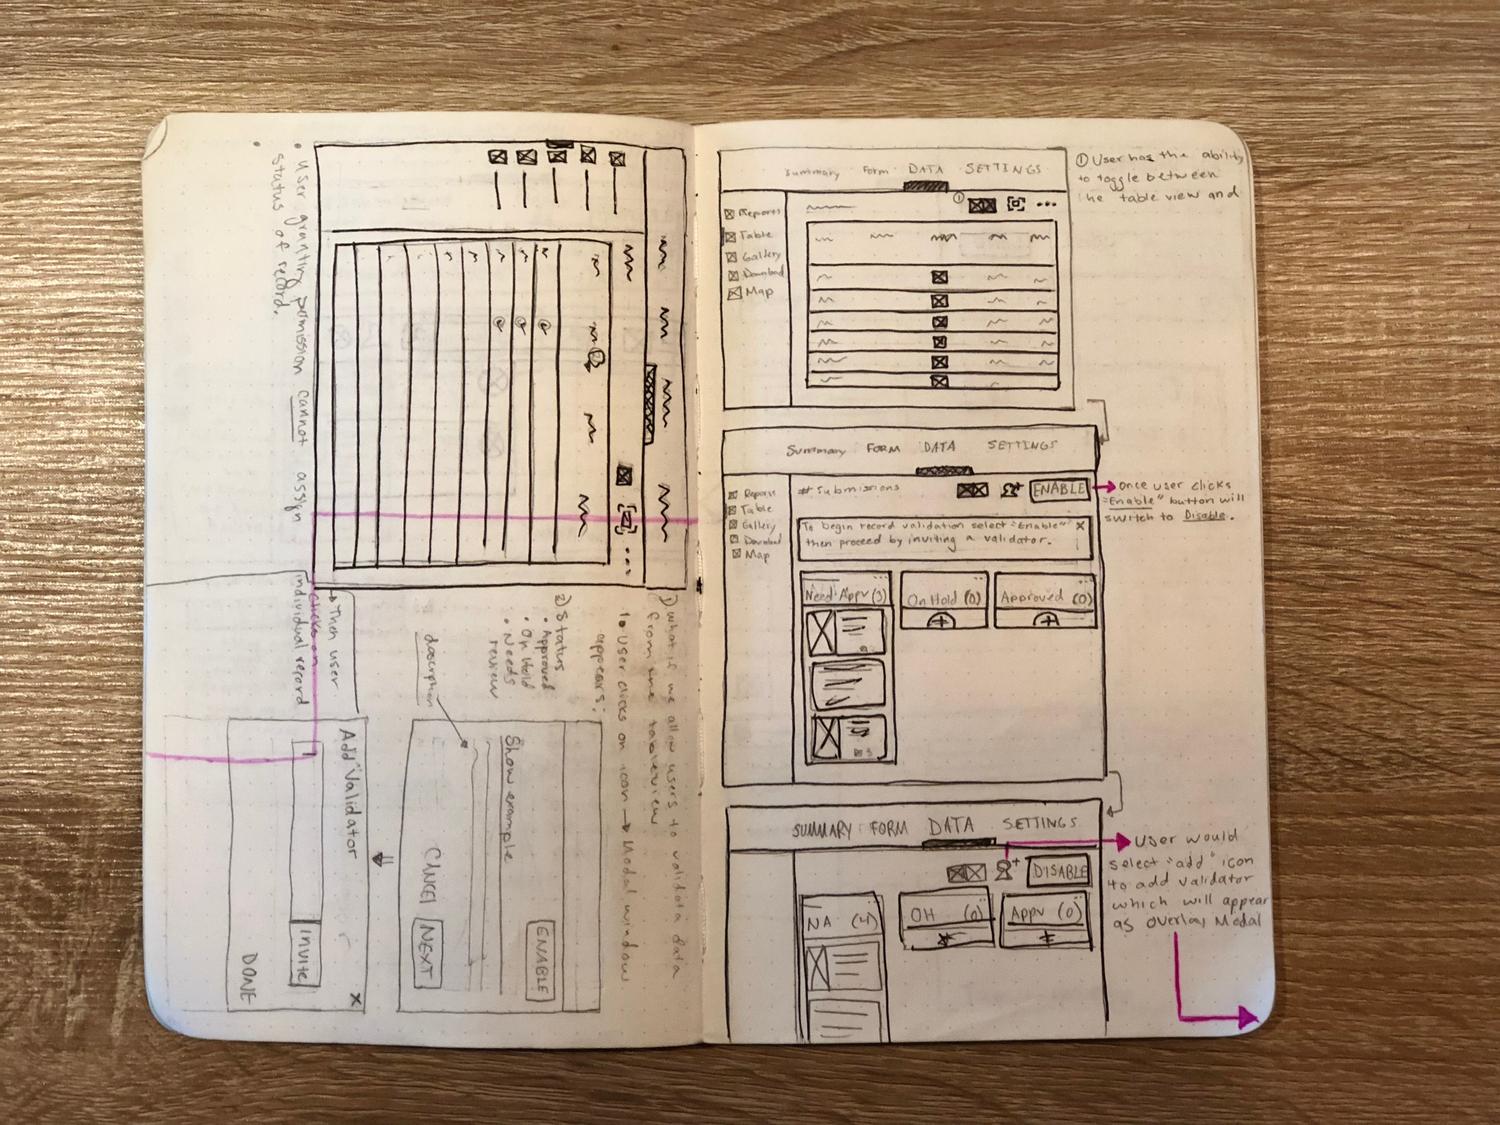 • User granting permission cannot assign
status of record.
•
1) what if we allow users to validate data
from the table view
1• User clicks on icon → Modal window
appears:
2) Status
• Approved
• On Hold
• Needs
review
description
ENABLE
Show example
CANCEL
NEXT
→ Then user
clicks on
individual record
Add Validator
X
Invite
DONE
Summary Form DATA SETTINGS
Reports
Table
Gallery
Download
Map
①
① User has the ability
to toggle between
the table view and
Summary FORM DATA SETTINGS
Reports
Table
Gallery
Download
Map
# Submissions
ENABLE
→ Once user clicks
"Enable" button will
switch to Disable.
To begin record validation select "Enable" X
then proceed by inviting a validator.
Need Appv (3)
On Hold (0)
Approved (0)
SUMMARY FORM DATA SETTINGS
DISABLE
NA (4)
OH (0)
Appv (0)
User would
select "add" icon
to add validator
which will appear
as overlay Modal